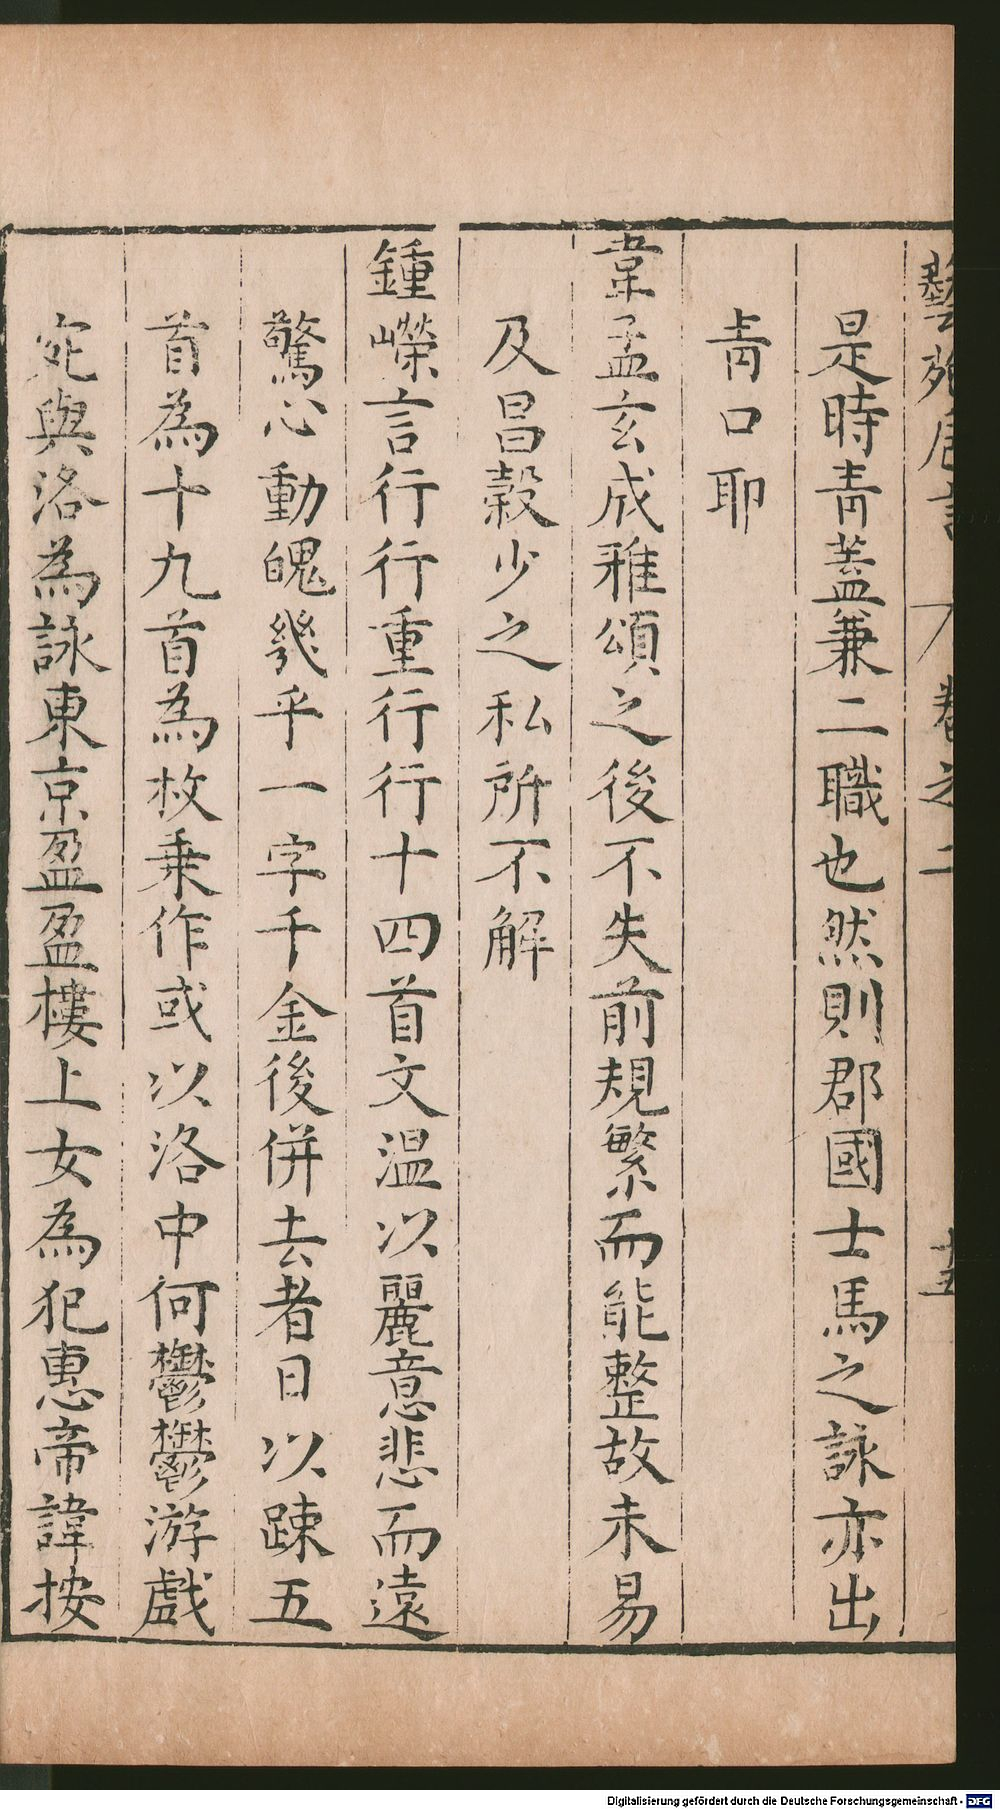 藝苑卮言 卷之二 十五
是時青蓋兼二職也然則郡國士馬之詠亦出
青口耶
韋孟玄成雅頌之後不失前規繁而能整故未易
及昌穀少之私所不解
鍾嶸言行行重行行十四首文温以麗意悲而遠
驚心動魄幾乎一字千金後併去者日以踈五
首為十九首為枚乗作或以洛中何鬱鬱游戲
宛與洛為詠東京盈盈樓上女為犯惠帝諱按
Digitalisierung gefördert durch die Deutsche Forschungsgemeinschaft - DFG